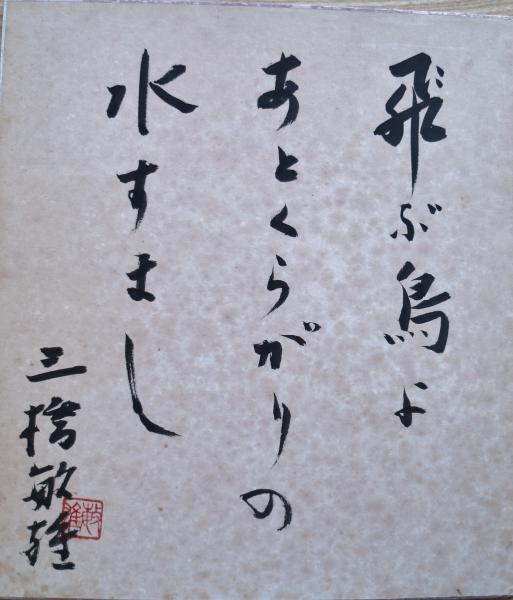 飛ぶ鳥よ
あとくらがりの
水すまし
三橋敏雄
敏雄